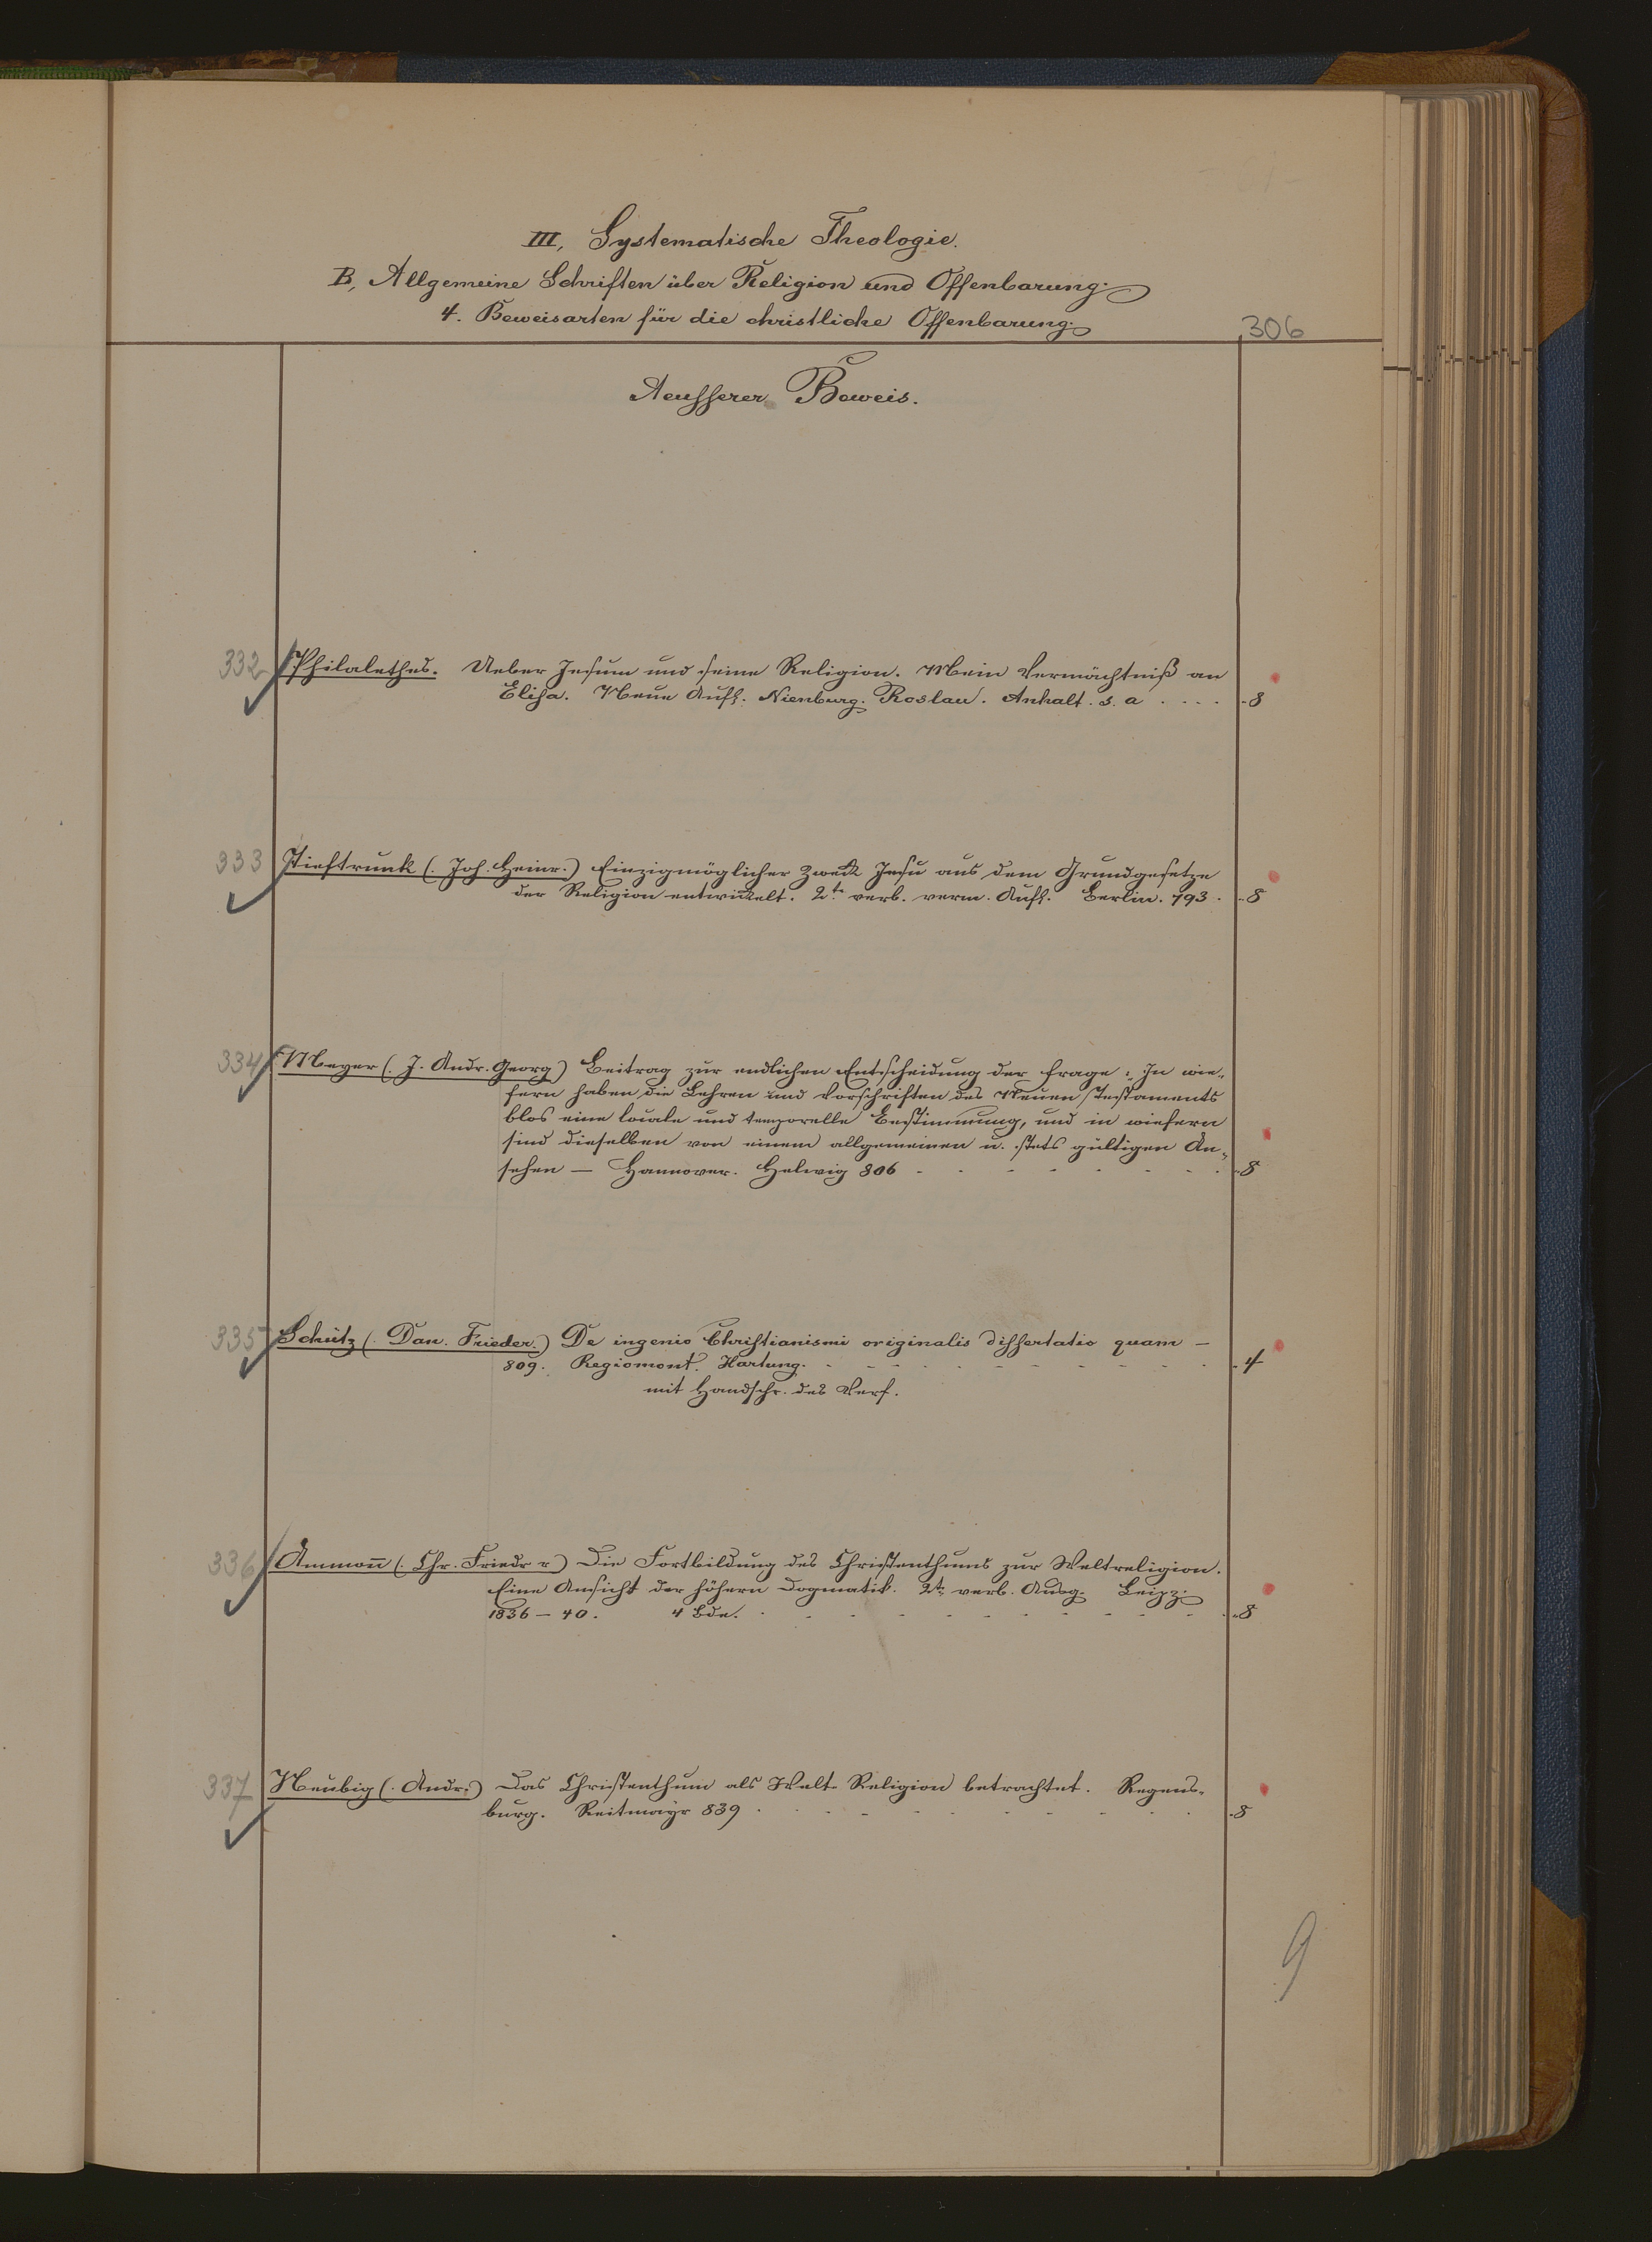 III, Systematische Theologie.
B, Allgemeine Schriften über Religion und Offenbarung.
4. Beweisarten für die christliche Offenbarung.
306
Aeusserer Beweis.
332 Philalethes. Ueber Jesum und seine Religion. Mein Vermächtniß an
Elisa. Neue Aufl. Nienburg. Roslau. Anhalt. s. a . . . . 8
333 Tieftrunk (. Joh. Heinr.) Einzigmöglicher Zweck Jesu aus dem Grundgesetze
der Religion entwickelt. 2te verb. verm. Aufl. Berlin. 793. 8
334 Meyer (. J. Andr. Georg) Beitrag zur endlichen Entscheidung der Frage: In wie-
fern haben die Lehren und Vorschriften des Neuen Testaments
blos eine locale und temporelle Bestimmung, und in wiefern
sind dieselben von einem allgemeinen u. stets gültigen An-
sehen — Hannover. Helwig 806 - - - - - - - 8
335 Schütz (. Dan. Frieder.) De ingenio Christianismi originalis dissertatio quam —
809. Regiomont. Hartung. - - - - - - - - 4
mit Handschr. des Verf.
336 Ammon̄ (. Chr. Friedr v) Die Fortbildung des Christenthums zur Weltreligion.
Eine Ansicht der höhern Dogmatik. 2te verb. Ausg. Leipz.
1836 — 40. 4 Bde. - - - - - - - - 8
337 Neubig (. Andr:) Das Christenthum als Welt-Religion betrachtet. Regens-
burg. Reitmayr 839 - - - - - - - 8
9